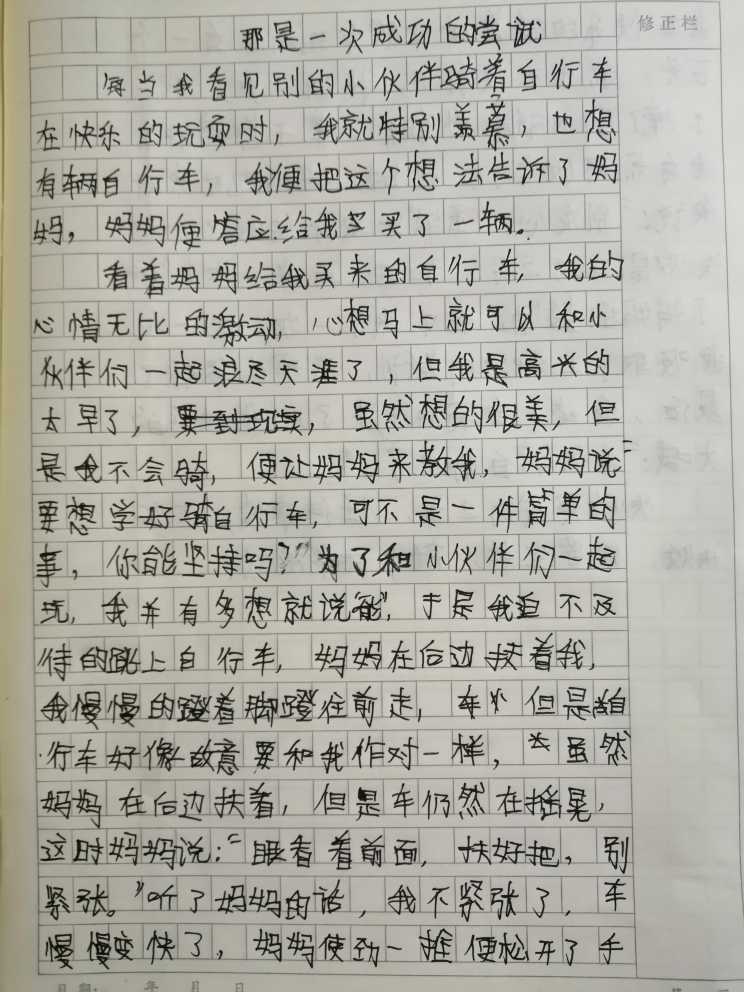 修正栏
那是一次成功的尝试
每当我看见别的小伙伴骑着自行车
在快乐的玩耍时，我就特别羡慕，也想
有辆自行车，我便把这个想法告诉了妈
妈，妈妈便答应给我买了一辆。
看着妈妈给我买来的自行车，我的
心情无比的激动，心想马上就可以和小
伙伴们一起浪尽天涯了，但我是高兴的
太早了，虽然想的很美，但
是我不会骑，便让妈妈来教我，妈妈说“
要想学好骑自行车，可不是一件简单的
事，你能坚持吗？”为了和小伙伴们一起
玩，我并有多想就说能，于是我迫不及
待的跳上自行车，妈妈在后边扶着我，
我慢慢的蹬着脚蹬往前走，但是自
行车好像故意要和我作对一样，虽然
妈妈在后边扶着，但是车仍然在摇晃，
这时妈妈说：“眼看着前面，扶好把，别
紧张。”听了妈妈的话，我不紧张了，车
慢慢变快了，妈妈使劲一推便松开了手
年 月 日